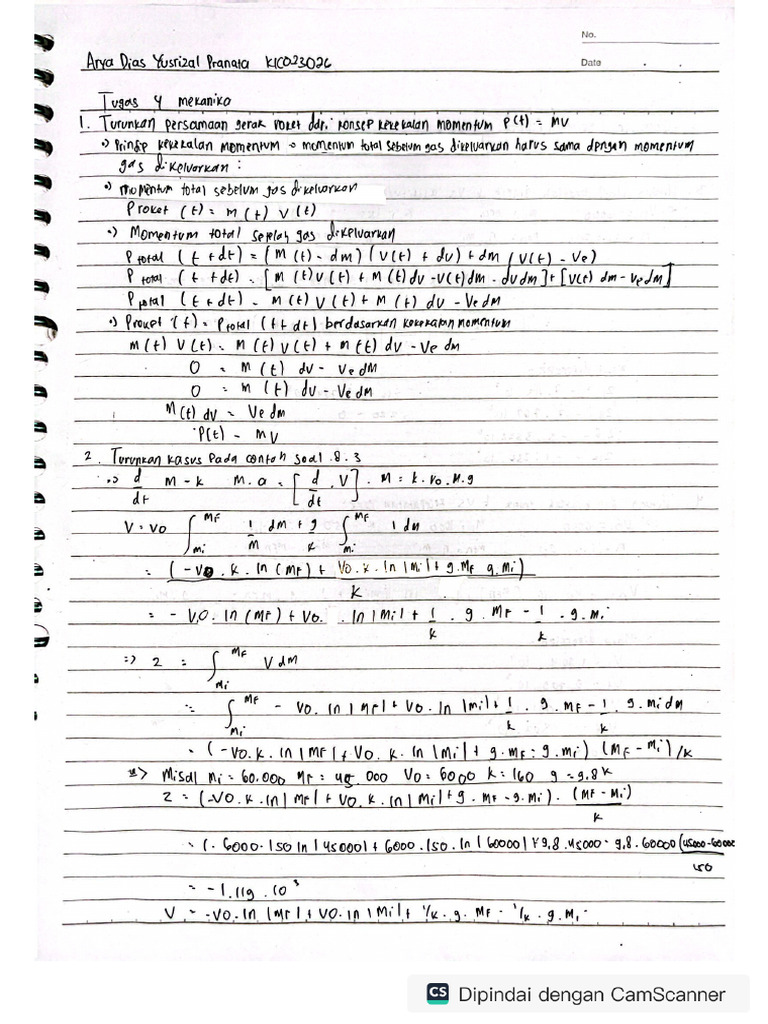 No.
Date . .
Arya Dias Yusrizal Pranata K1C023026
Tugas 4 mekanika
1. Turunkan persamaan gerak roket dari konsep kekekalan momentum P(t) = mv
•) Prinsip kekekalan momentum → momentum total sebelum gas dikeluarkan harus sama dengan momentum
gas dikeluarkan :
•) momentum total sebelum gas dikeluarkan
Proket (t) = m(t) v(t)
•) Momentum total setelah gas dikeluarkan
Ptotal (t + dt) = (m(t) - dm) (v(t) + dv) + dm (v(t) - Ve)
Ptotal (t + dt) = [m(t)v(t) + m(t)dv - v(t)dm - dvdm] + [v(t) dm - Vedm]
Ptotal (t + dt) = m(t) v(t) + m(t) dv - Vedm
•) Proket (t) = Ptotal (t + dt) berdasarkan kekekalan momentum
m(t) v(t) = m(t) v(t) + m(t) dv - Ve dm
0 = m(t) dv - Ve dM
0 = m(t) dv - Vedm
M(t) dv = Ve dm
P(t) = mv
2. Turunkan kasus pada contoh soal .8.3
=> d/dt m = k m.a = [d/dt . V] . M = k.Vo.M.g
V = Vo ∫mi^MF 1/m dm + g/k ∫mi^MF 1 dm
= (-Vo . k . ln (MF) + Vo . k . ln |Mi| + g.MF g.Mi) / k
= - V.O . ln (MF) + Vo . . ln |Mi| + 1/k . g . MF - 1/k . g . Mi
=> 2 = ∫Mi^MF V dm
= ∫Mi^MF - Vo . ln |MF| + Vo . ln |Mi| + 1/k . g . MF - 1/k . g . Mi dm
= (-Vo.k . ln |MF| + Vo . k . ln |Mi| + g . MF - g . Mi) (MF - Mi)/k
=> Misal Mi = 60.000 MF = 45 .000 Vo = 6000 k = 160 g = 9.8 k
2 = (-VO . k . ln |MF| + Vo . k . ln |Mi| + g . MF - g . Mi) . (MF - Mi)/k
= (- 6000 . 150 ln |45000| + 6000 . 150 . ln |60000| + 9,8 . 45000 - 9,8 . 60000 (45000-60000
150
= - 1.119 . 10³
V = -Vo . ln |MF| + VO . ln |Mi| + 1/k . g . MF - 1/k . g . Mi
CS Dipindai dengan CamScanner